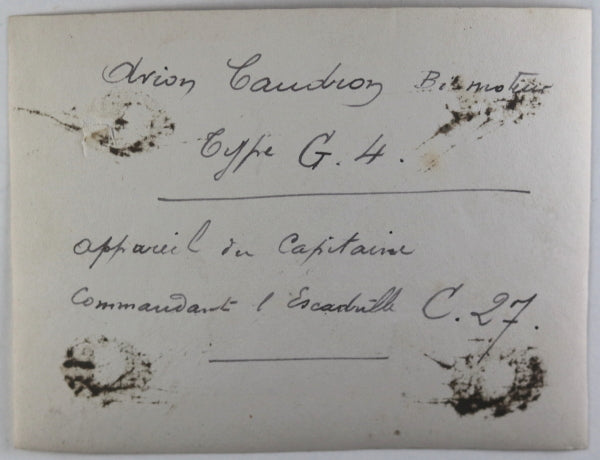 Avion Caudron Bi-moteur
Type G. 4.
appareil du Capitaine
Commandant l'Escadrille C. 27.